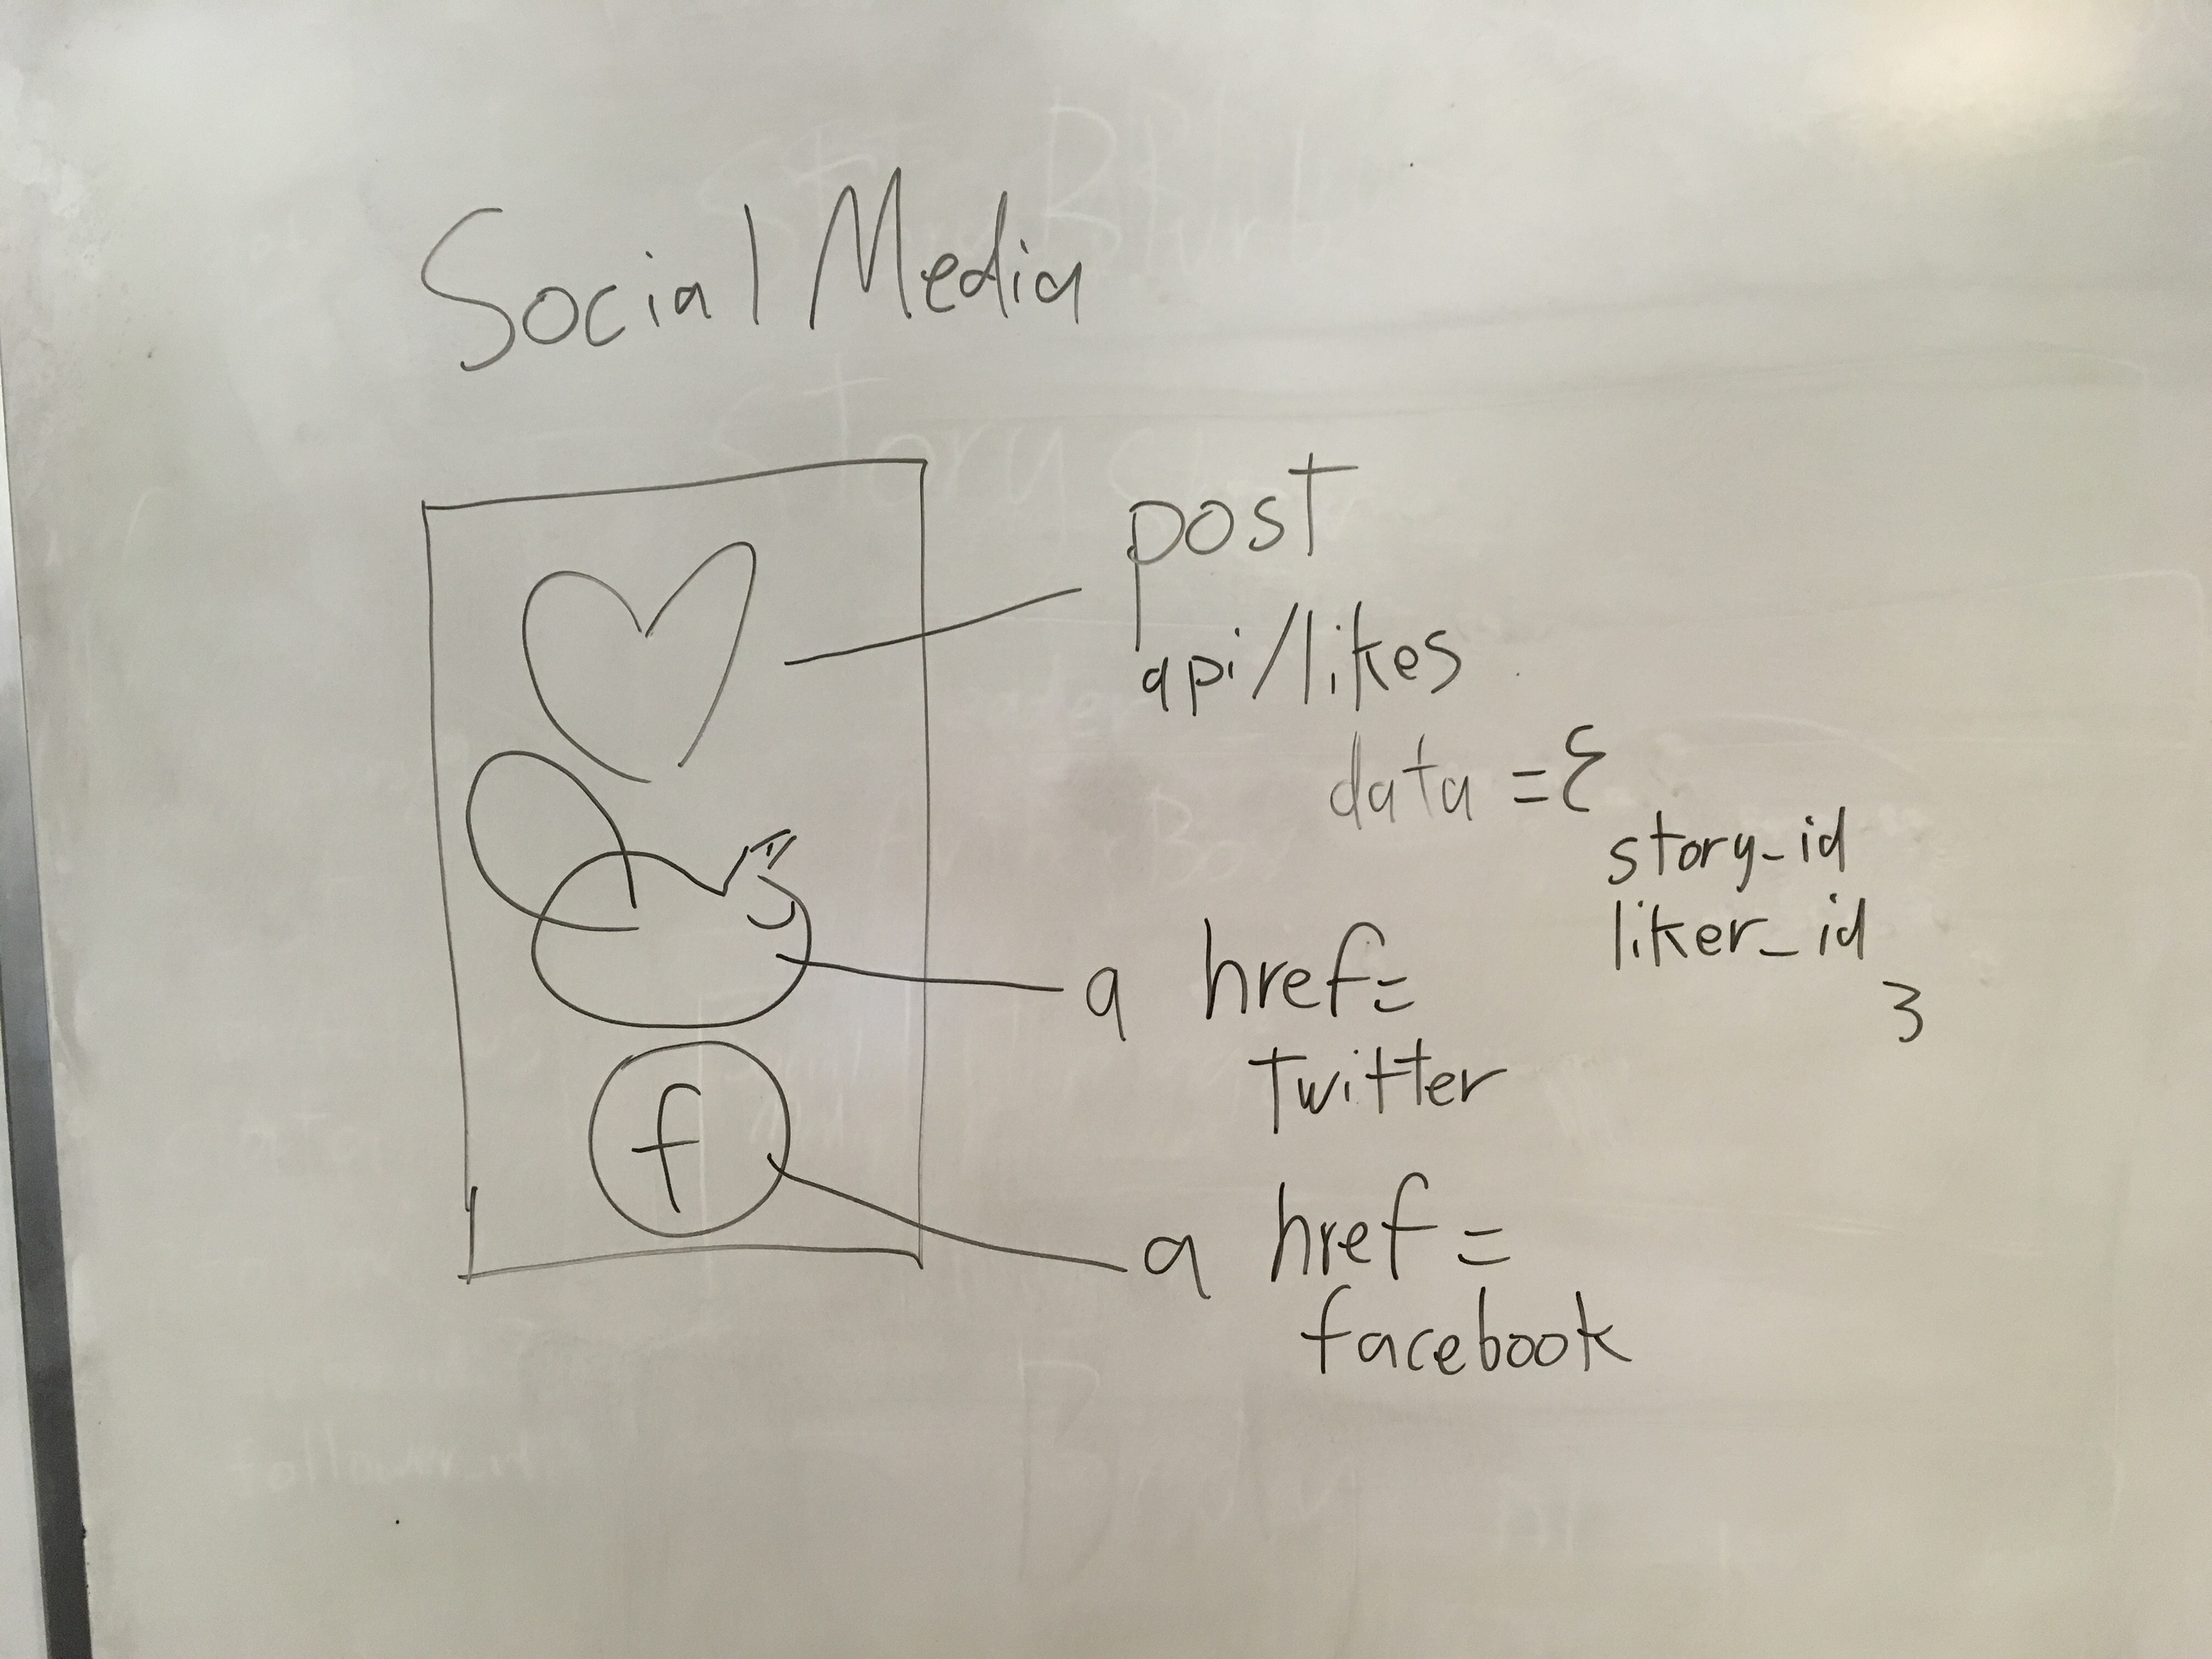 Social Media
post
api/likes
data = {
story_id
liker_id
}
a href=
twitter
f
a href =
facebook